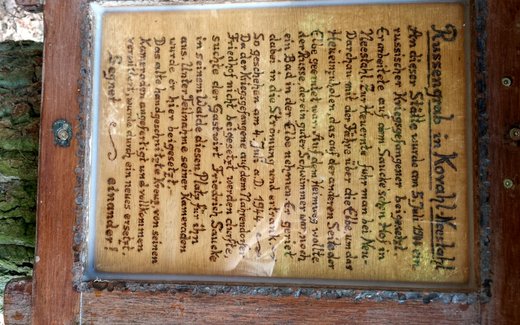 Russengrab in Kovahl-Neestahl
An dieser Stätte wurde am 5. Juli 1944 ein
russischer Kriegsgefangener beigesetzt.
Er arbeitete auf dem Saucke'schen Hof in
Neestahl. Zur Heuernte fuhr man bei Neu-
Darchau mit der Fähre über die Elbe, um das
Heu einzuholen, das auf der anderen Seite der
Elbe geerntet war. Auf dem Heimweg wollte
der Russe, der ein guter Schwimmer war, noch
ein Bad in der Elbe nehmen. Er geriet
dabei in die Strömung und ertrank.
So geschehen am 4. Juli a.D. 1944
Da der Kriegsgefangene auf dem Nahrendorfer
Friedhof nicht beigesetzt werden durfte,
suchte der Gastwirt Friedrich Saucke
in seinem Walde diesen Platz für ihn
aus. Unter Teilnahme seiner Kameraden
wurde er hier beigesetzt.
Das alte handgeschnitzte Kreuz, von seinen
Kameraden angefertigt und vollkommen
verwittert, wurde durch ein neues ersetzt.
Segnet einander!